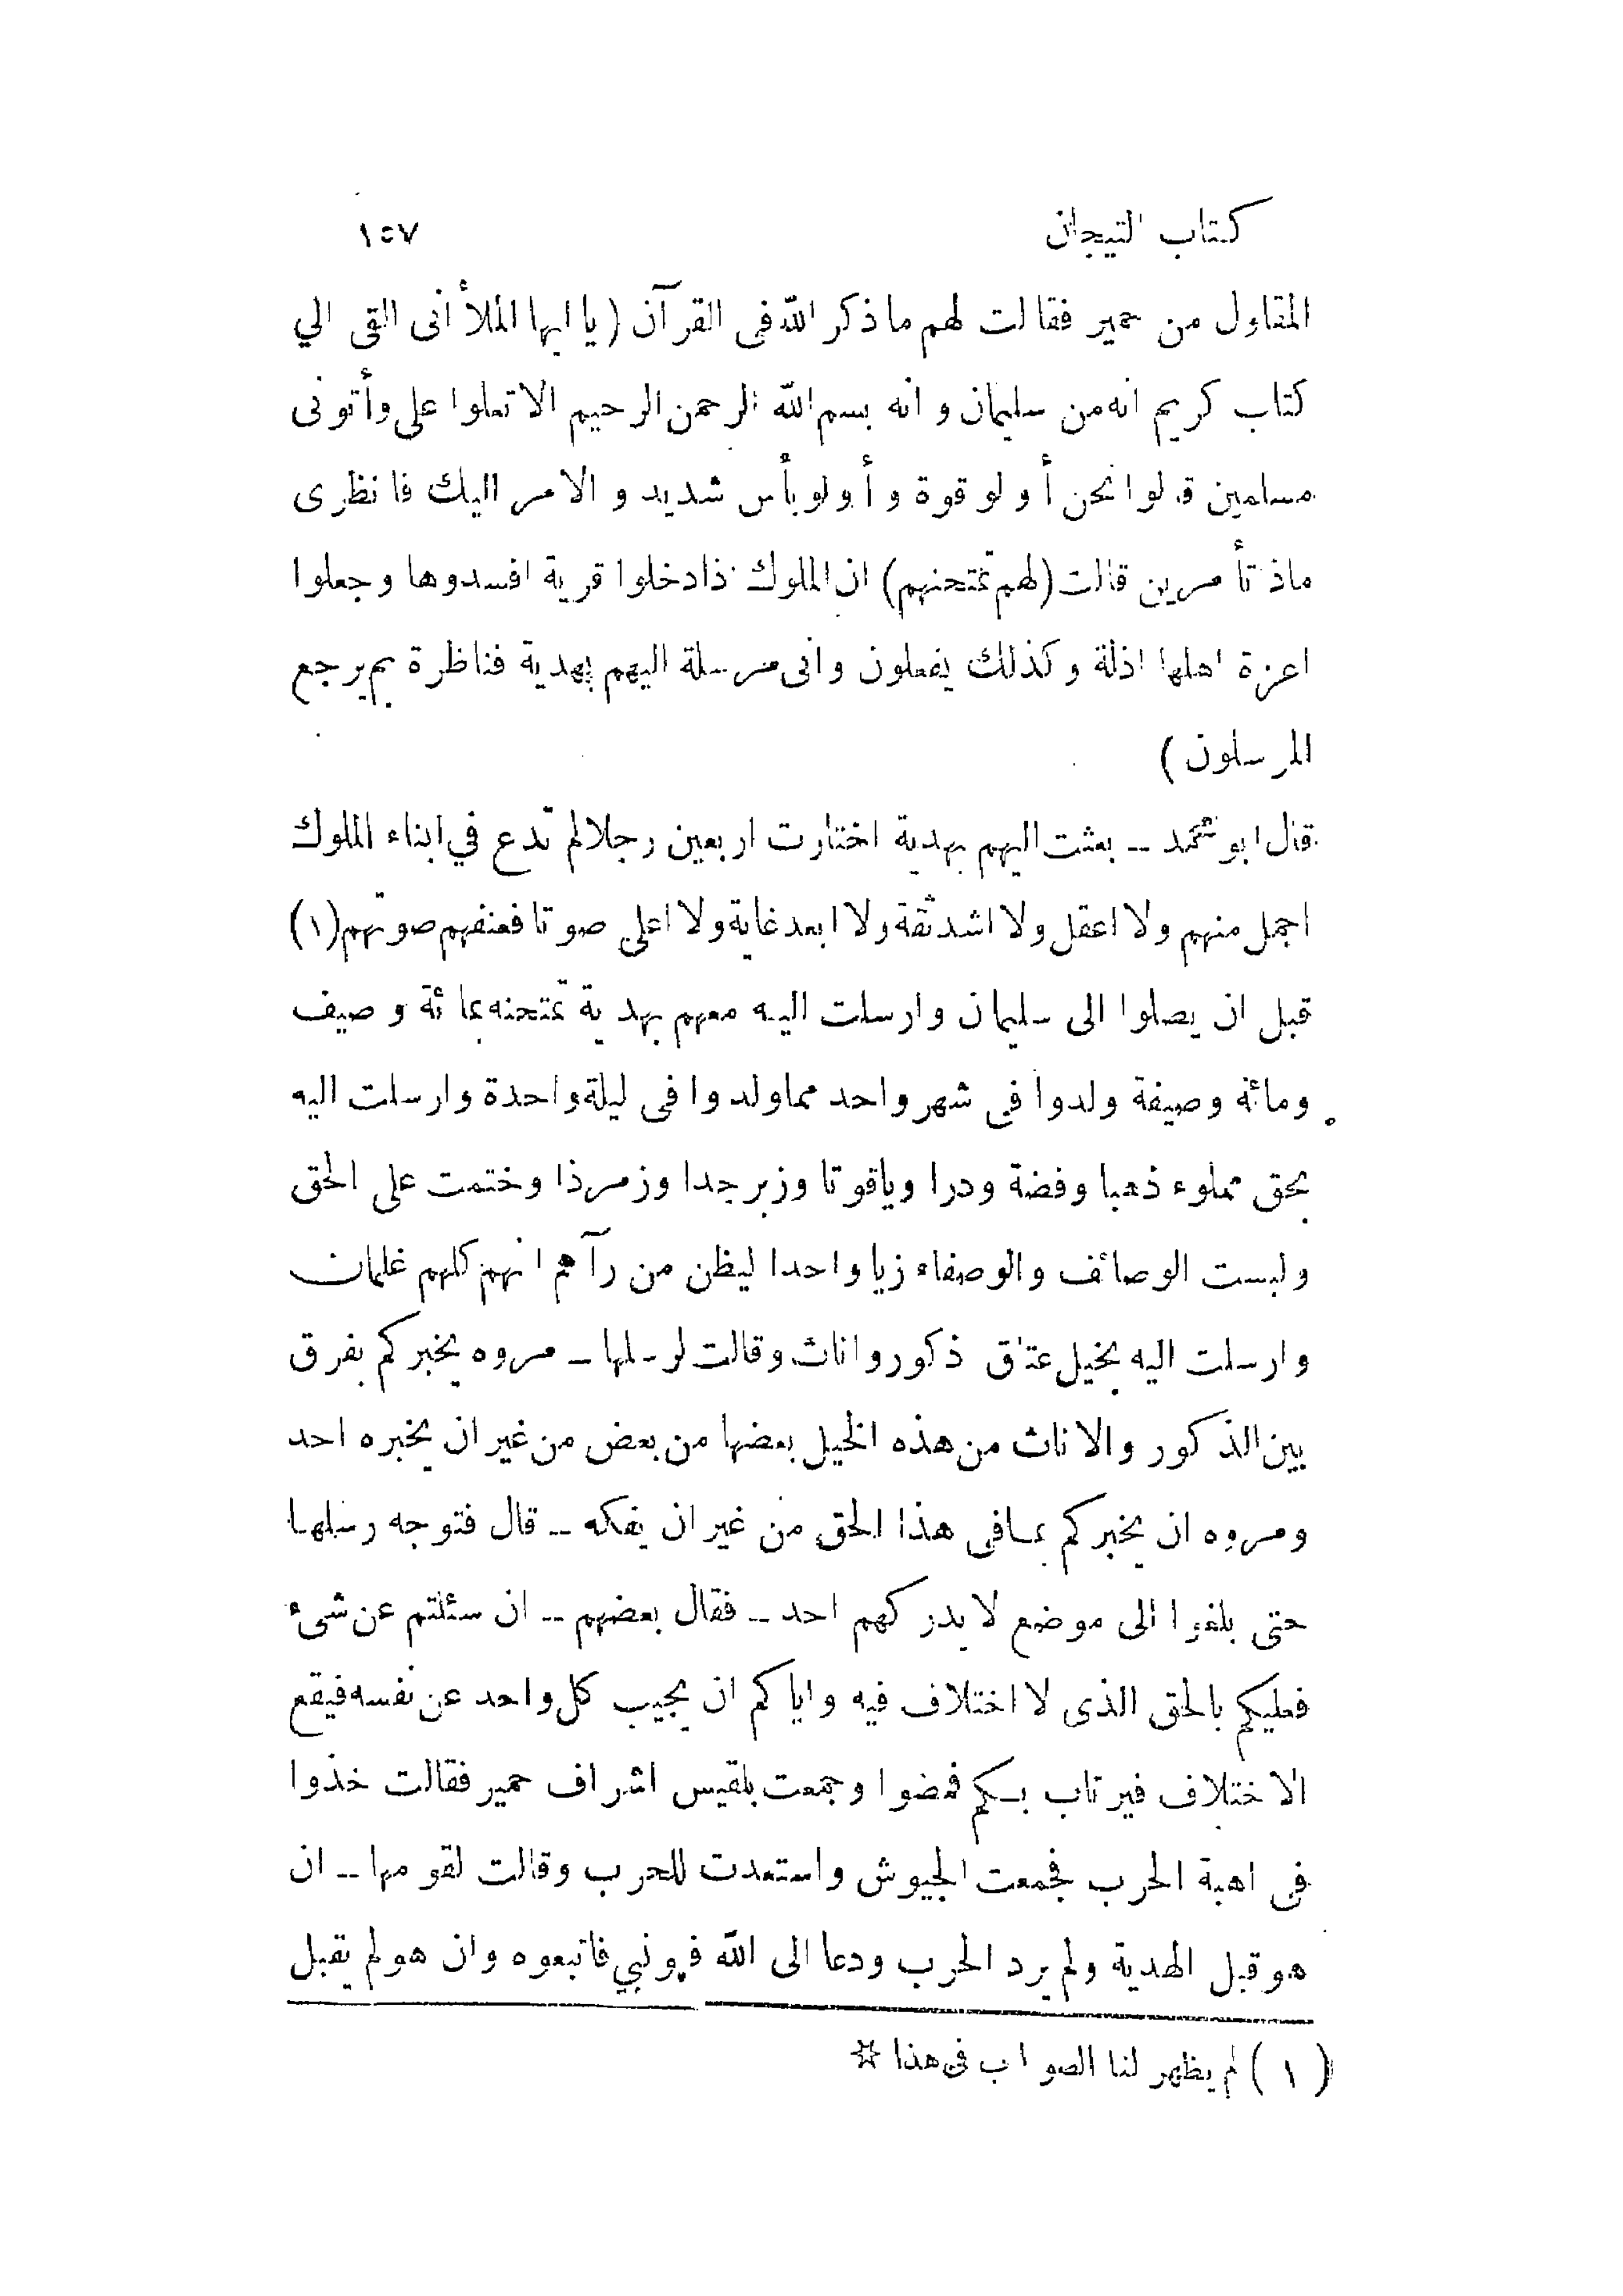 كتاب التيجان ١٥٧
المقاول من حمير فقالت لهم ما ذكر الله فى القرآن (يا ايها الملأ أنى القى الي
كتاب كريم انه من سليمان و انه بسم الله الرحمن الرحيم الا تعلوا على وأتونى
مسلمين قالوا نحن أولو قوة و أولو بأس شديد و الامر اليك فانظرى
ماذا تأمرين قالت (لهم تمتحنهم) ان الملوك اذا دخلوا قرية افسدوها وجعلوا
اعزة اهلها اذلة وكذلك يفعلون وانى مرسلة اليهم بهدية فناظرة بم يرجع
المرسلون)
قال ابو محمد -- بعثت اليهم بهدية اختارت اربعين رجلا لم تدع في ابناء الملوك
اجمل منهم ولا اعقل ولا اشد ثقة ولا ابعد غاية ولا اعلى صوتا فعنفهم صوتهم (١)
قبل ان يصلوا الى سليمان وارسلت اليه معهم بهدية تمتحنه بمائة وصيف
ومائة وصيفة ولدوا فى شهر واحد مما ولدوا فى ليلة واحدة وارسلت اليه
بحق مملوء ذهبا وفضة ودرا وياقوتا وزبرجدا وزمرذا وختمت على الحق
ولبست الوصائف والوصفاء زيا واحدا ليظن من رآهم انهم كلهم غلمان
وارسلت اليه بخيل عتاق ذكور واناث وقالت لرسلها -- مروه يخبركم بفرق
بين الذكور والاناث من هذه الخيل بعضها من بعض من غير ان يخبره احد
ومروه ان يخبركم بما فى هذا الحق من غير ان يفكه -- قال فتوجه رسلها
حتى بلغوا الى موضع لا يدركهم احد -- فقال بعضهم -- ان سئلتم عن شىء
فعليكم بالحق الذى لا اختلاف فيه واياكم ان يجيب كل واحد عن نفسه فيقع
الاختلاف فيرتاب بكم فمضوا وجمعت بلقيس اشراف حمير فقالت خذوا
فى اهبة الحرب فجمعت الجيوش واستعدت للحرب وقالت لقومها -- ان
هو قبل الهدية ولم يرد الحرب ودعا الى الله فهو نبي فاتبعوه وان هو لم يقبل
(١) لم يظهر لنا الصواب فى هذا ☆